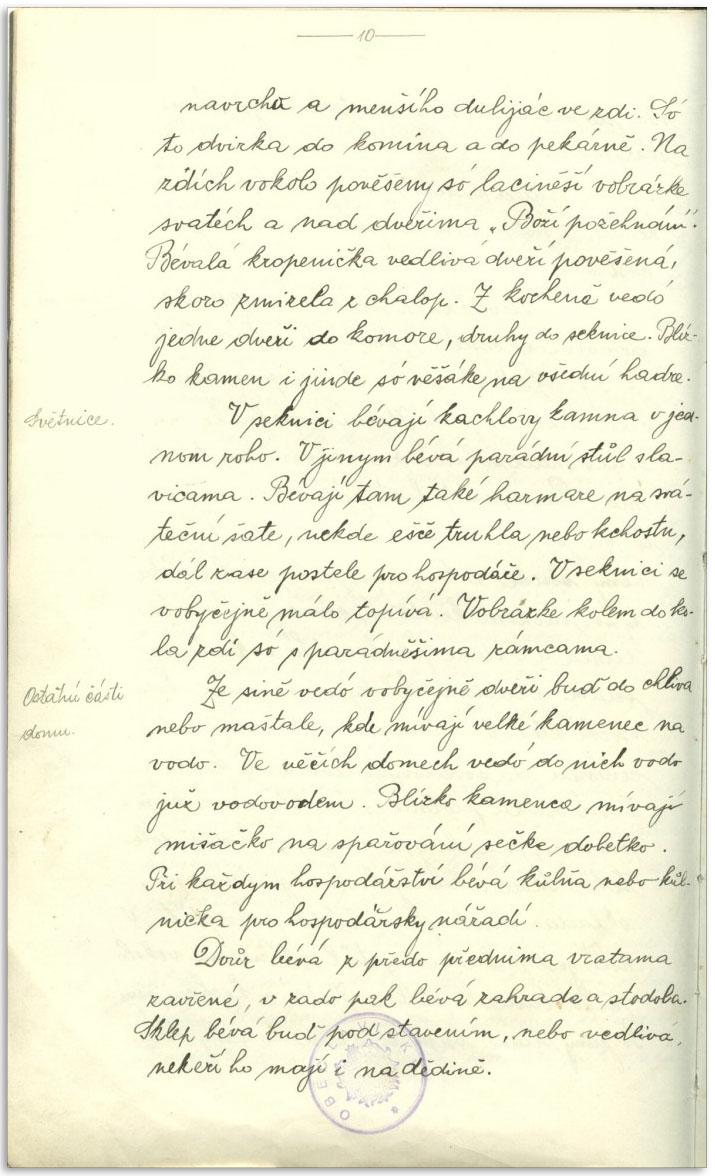 10
navrchu a menšího dulijác ve zdi. Só
to dvirka do komína a do pekárně. Na
zdích vokolo pověšeny só laciněší vobrázke
svatéch a nad dveřima „Boží požehnání“.
Bévalá kropenička vedlivá dveří pověšená,
skoro zmizela z chalop. Z kocheně vedó
jedne dveři do komore, druhy do seknice. Blíz-
ko kamen i jinde só věšáke na všední hadre.
Světnice.
V seknici bévají kachlovy kamna v jed-
nom roho. V jinym bévá parádní stůl sla-
vicama. Bévají tam také harmare na svá-
teční šate, nekde ešče truhla nebo kchostn,
dál zase postele pro hospodáře. V seknici se
vobyčejně málo topívá. Vobrázke kolem doko-
la zdí só s parádněšima rámcama.
Ostatní části
domu.
Ze sině vedó vobyčejně dveři buď do chliva
nebo maštale, kde mívají velké kamenec na
vodo. Ve věčích domech vedó do nich vodo
již vodovodem. Blízko kamenca mívají
mišačko na spařování sečke dobetko.
Při každym hospodářství bévá kůlňa nebo kůl-
nička pro hospodářsky nářadí.
Dvůr bévá z předo předníma vratama
zavřené, v zado pak bévá zahrada a stodola.
Sklep bévá buď pod stavením, nebo vedlivá,
nekeří ho mají i na dědině.